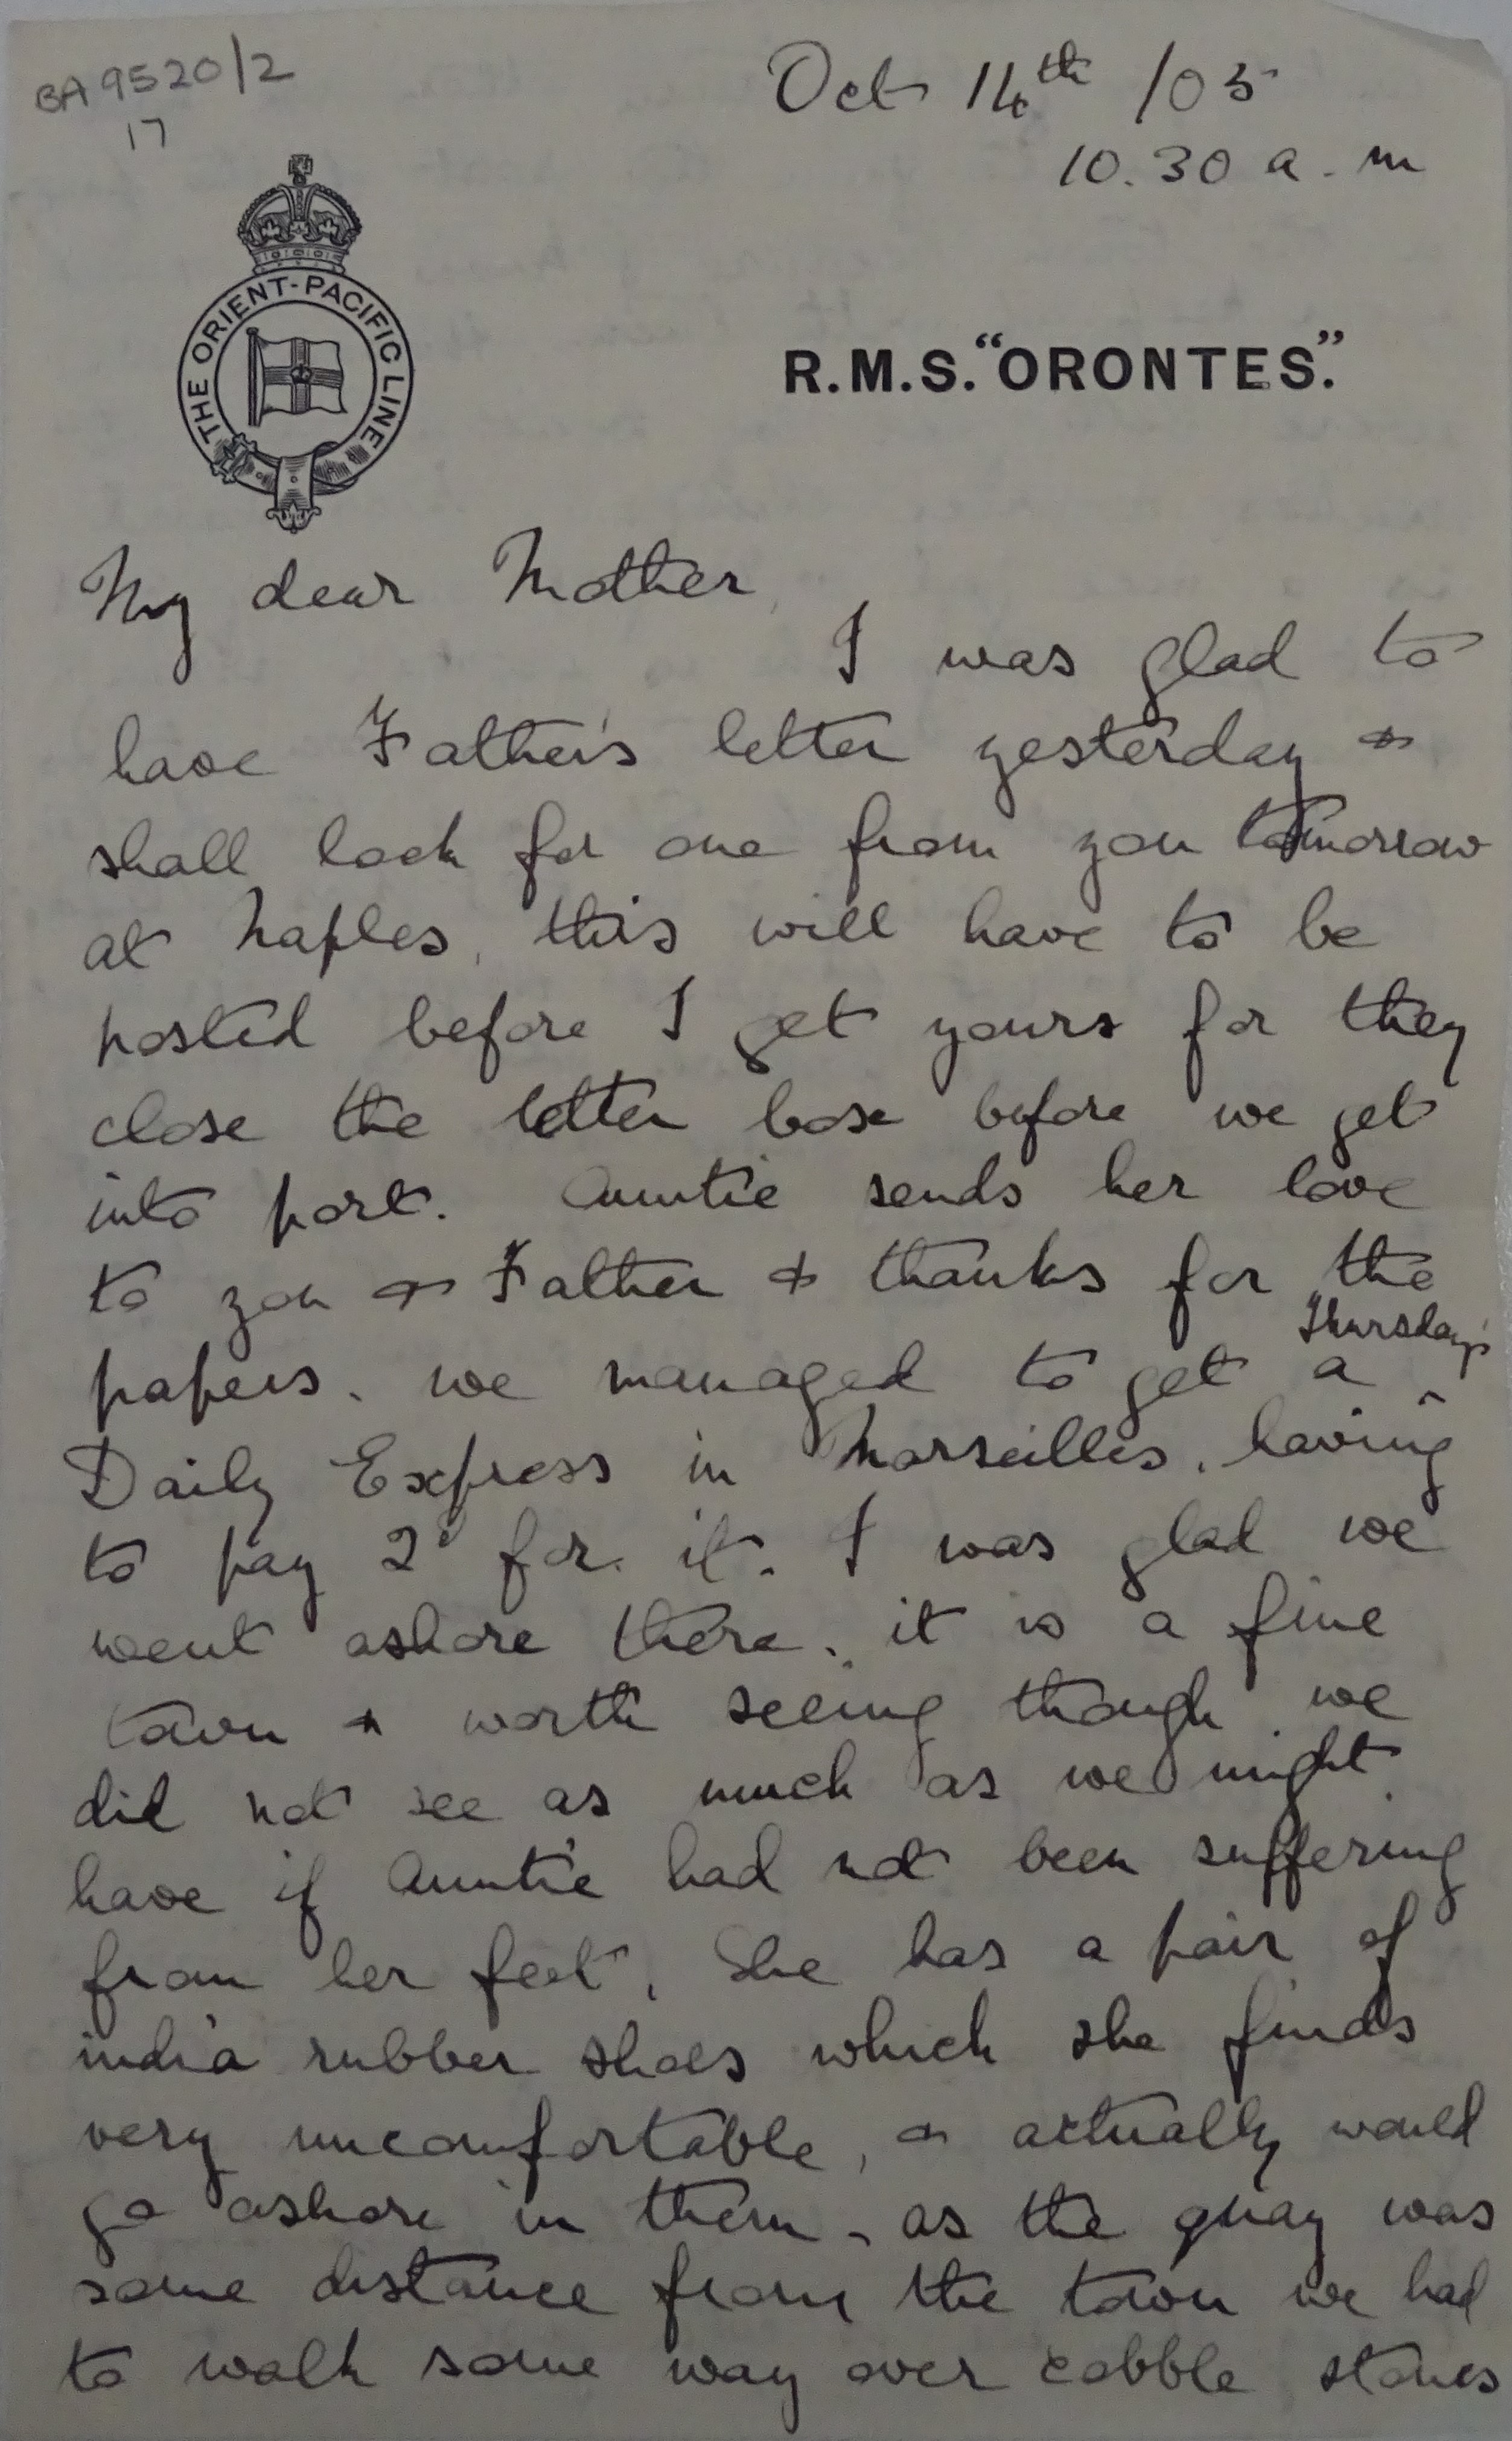 BA 9520/2
17
Oct 14th /05
10.30 a.m
THE ORIENT-PACIFIC LINE
R.M.S. "ORONTES."
My dear Mother,
I was glad to
have Father's letter yesterday &
shall look for one from you tomorrow
at Naples, this will have to be
posted before I get yours for they
close the letter box before we get
into port. Auntie sends her love
to you & Father & thanks for the
papers. we managed to get a Thursday's
Daily Express in Marseilles, having
to pay 2d for it. I was glad we
went ashore there. it is a fine
town & worth seeing though we
did not see as much as we might
have if Auntie had not been suffering
from her feet. She has a pair of
india rubber shoes which she finds
very uncomfortable, & actually would
go ashore in them, as the quay was
some distance from the town we had
to walk some way over cobble stones